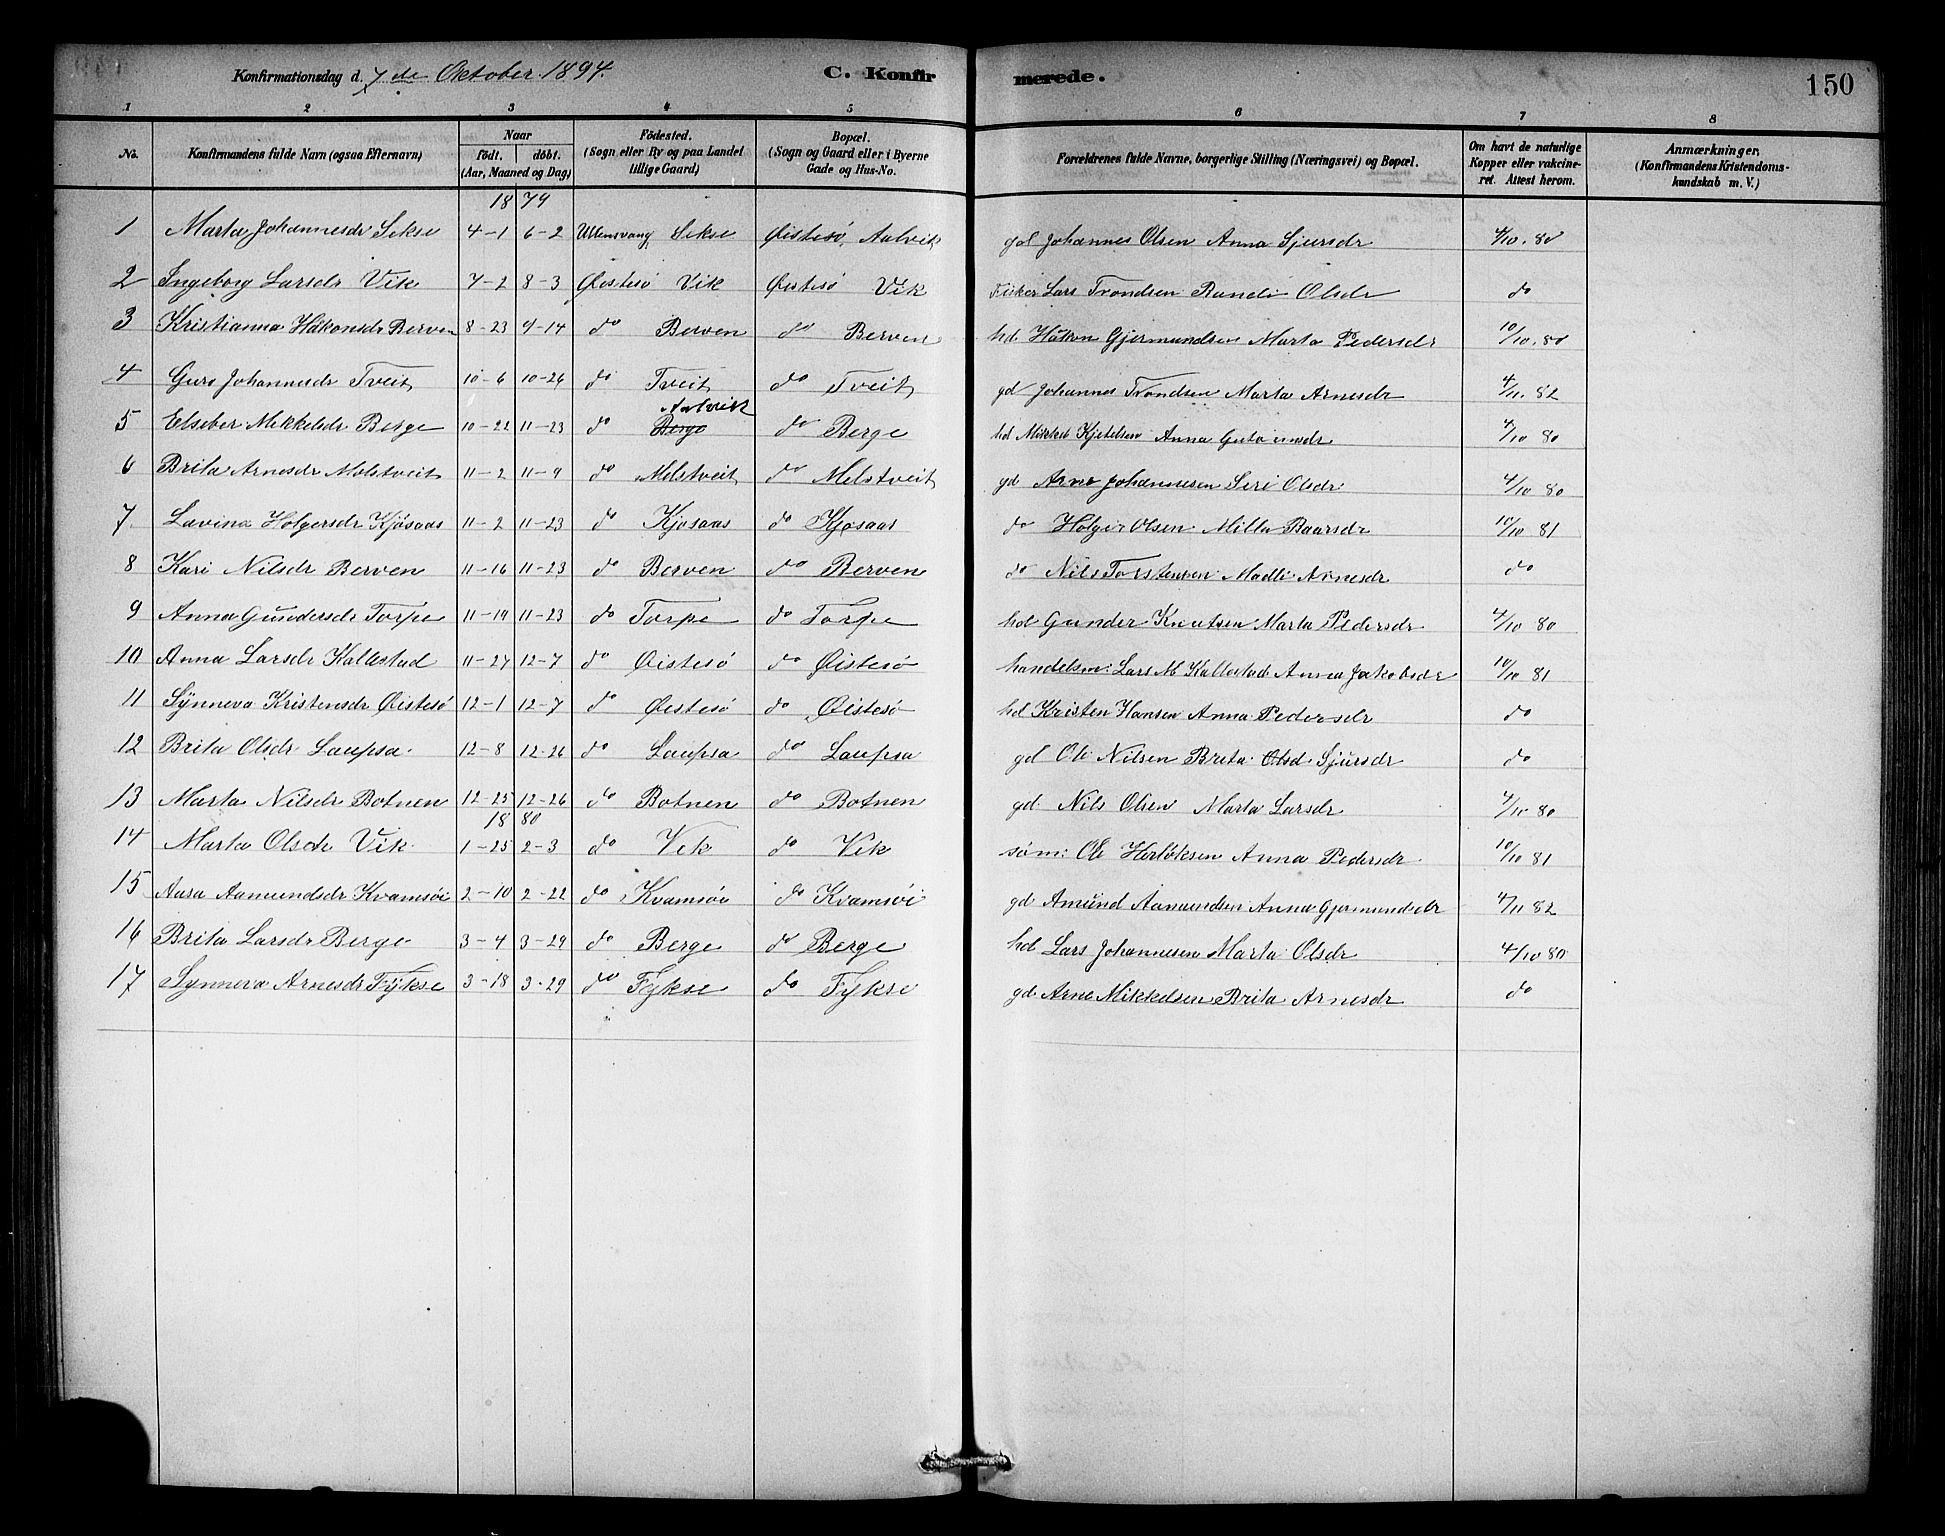 Konfirmationsdag d. 7de Oktober 1894. C. Konfir merede. 150
1 2 3 4 5 6 7 8
No. Konfirmandens fulde Navn (ogsaa Efternavn) Naar födt. döbt. (Aar, Maaned og Dag) Födested. (Sogn eller By og paa Landet tillige Gaard) Bopæl. (Sogn og Gaard eller i Byerne Gade og Hus-No. Forældrenes fulde Navne, borgerlige Stilling (Næringsvei) og Bopæl. Om havt de naturlige Kopper eller vakcineret. Attest herom. Anmærkninger, (Konfirmandens Kristendomskundskab m. V.)
1879
1 Marta Johannesdr Sekse 4-1 6-2 Ullensvang Sekse Øistesö, Aalvik gd Johannes Olsen Anna Sjursdr 4/10. 80
2 Ingeborg Larsdr Vik 7-2 8-3 Øistesö Vik Øistesö Vik Fisker Lars Trondsen Randi Olsdr do
3 Kristianna Håkonsdr Berven 8-23 9-14 do Berven do Berven hd. Håkon Gjermundsen Marta Pedersdr 10/10. 80
4 Guro Johannesdr Tveit 10-6 10-26 do Tveit do Tveit gd Johannes Trondsen Marta Arnesdr 4/11. 82
5 Elseber Mikkelsdr Berge 10-22 11-23 do Berge Aalvik do Berge hd Mikkel Kjetelsen Anna 4/10 80
6 Brita Arnesdr Melstveit 11-2 11-9 do Melstveit do Melstveit gd Arne Johannesen Siri Olsdr 4/10 80
7. Lavina Holgersdr Kjösaas 11-2 11-23 do Kjosaas do Kjosaas do Holger Olsen Milla Baarsdr 10/10 81
8 Kari Nilsdr Berven 11-16 11-23 do Berven do Berven do Nils Torstensen Madli Arnesdr do
9 Anna Gundersdr Torpe 11-19 11-23 do Torpe do Torpe hd Gunder Knutsen Marta Pedersdr 4/10 80
10 Anna Larsdr Kallestad 11-27 12-7 do Øistesö do Øistesö handelsm: Lars M Kallestad Anna Jakobsdr 10/10 81
11 Synneva Kristensdr Øistesö 12-1 12-7 do Øistesö do Øistesö hd Kristen Hansen Anna Pedersdr do
12 Brita Olsdr Laupsa 12-8 12-26 do Laupsa do Laupsa gd Ole Nilsen Brita Olsd Sjursdr do
13 Marta Nilsdr Botnen 12-25 12-26 do Botnen do Botnen gd. Nils Olsen Marta Larsdr 4/10 80
1880
14 Marta Olsdr Vik 1-25 2-3 do Vik do Vik söm: Ole Herlöksen Anna Pedersdr 10/10 81
15 Aasa Aamundsdr Kvamsöi 2-10 2-22 do Kvamsöi do Kvamsöi gd Amund Aamundsen Anna Gjermundsdr 4/11 82
16 Brita Larsdr Berge 3-4 3-29 do Berge do Berge hd Lars Johannesen Marta Olsdr 4/10 80
17 Synneva Arnesdr Fykse 3-18 3-29 do Fykse do Fykse gd. Arne Mikkelsen Brita Arnesdr do